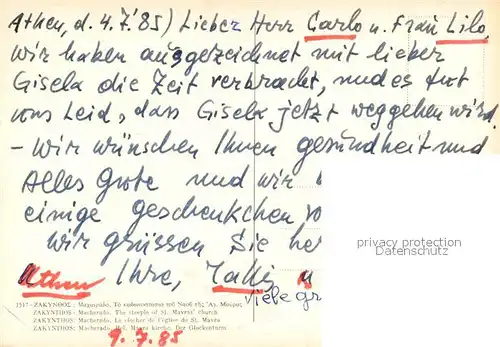 Athen, d. 4.7.'85) Lieber Herr Carlo u. Frau Lilo,
wir haben ausgezeichnet mit lieber
Gisela die Zeit verbracht, und es tut
uns Leid, dass Gisela jetzt weggehen wird.
- Wir wünschen Ihnen gesundheit und
Alles Gute und wir
einige geschenkchen
Wir grüssen Sie
privacy protection
watermark
Athen Ihre,
Viele
1517 - ΖΑΚΥΝΘΟΣ: Μαχαιράδο. Τὸ κωδωνοστάσιο τοῦ Ναοῦ τῆς Ἁγ. Μαύρας
ZAKYNTHOS: Macherado. The steeple of St. Mavras' church
ZAKYNTHOS: Macherado. Le clocher de l'église de St. Mavra
ZAKYNTHOS: Macherado. Hel. Mavra kirche. Der Glockenturm
9.7.85